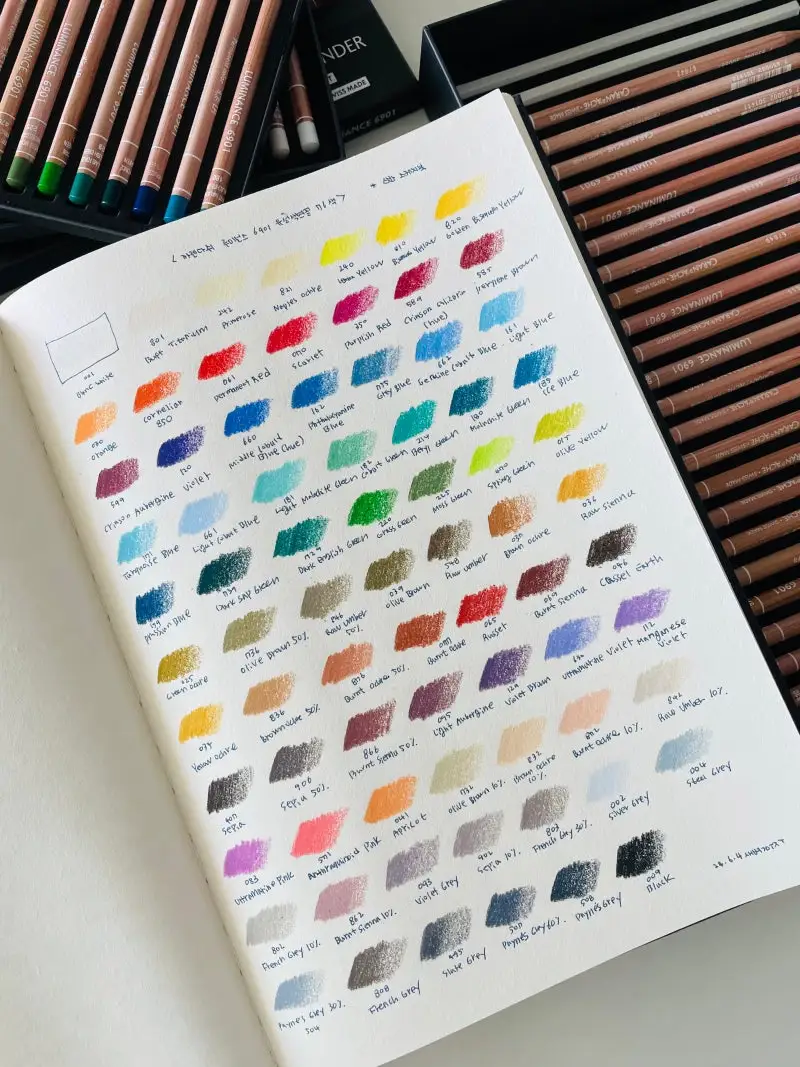 LUMINANCE 6901
LUMINANCE 6901
SWISS MADE
LUMINANCE 6901
CARAN D'ACHE
LUMINANCE 6901
6901
001
white
801
Buff Titanium
242
Primrose
821
Naples ochre
240
Lemon Yellow
810
Bismuth Yellow
820
Golden Bismuth Yellow
030
Orange
Cornelian
850
061
Permanent Red
070
Scarlet
350
Purplish Red
589
Crimson Alizarin
(hue)
585
Perylene Brown
599
Crimson Aubergine
120
Violet
660
Middle Cobalt
Blue (hue)
162
Phthalocyanine
Blue
Grey Blue
662
Genuine Cobalt Blue
161
Light Blue
171
Turquoise Blue
661
Light Cobalt Blue
181
Light Malachite Green
182
Cobalt Green
214
Beryl Green
180
Malachite Green
185
Ice Blue
159
Prussian Blue
739
Dark Sap Green
729
Dark English Green
220
Grass Green
225
Moss Green
470
Spring Green
015
Olive Yellow
025
Green ochre
736
Olive Brown 50%
846
Raw Umber
50%
039
Olive Brown
548
Raw umber
Brown ochre
036
Raw Sienna
034
Yellow ochre
836
Brown ochre 50%
876
Burnt ochre 50%
077
Burnt ochre
065
Russet
069
Burnt Sienna
046
Cassel Earth
407
Sepia
906
Sepia 50%
866
Burnt Sienna 50%
095
Light Aubergine
129
Violet Brown
630
Ultramarine Violet
112
Manganese
Violet
083
Ultramarine Pink
571
Anthraquinoid Pink
041
Apricot
732
Olive Brown 10%
832
Brown ochre
10%
872
Burnt ochre 10%
842
Raw Umber 10%
802
French Grey 10%
862
Burnt Sienna 10%
093
Violet Grey
902
Sepia 10%
803
French Grey 30%
002
Silver Grey
004
Steel Grey
Payne's Grey 30%
504
808
French Grey
495
Slate Grey
507
Payne's Grey 60%
508
Payne's Grey
009
Black